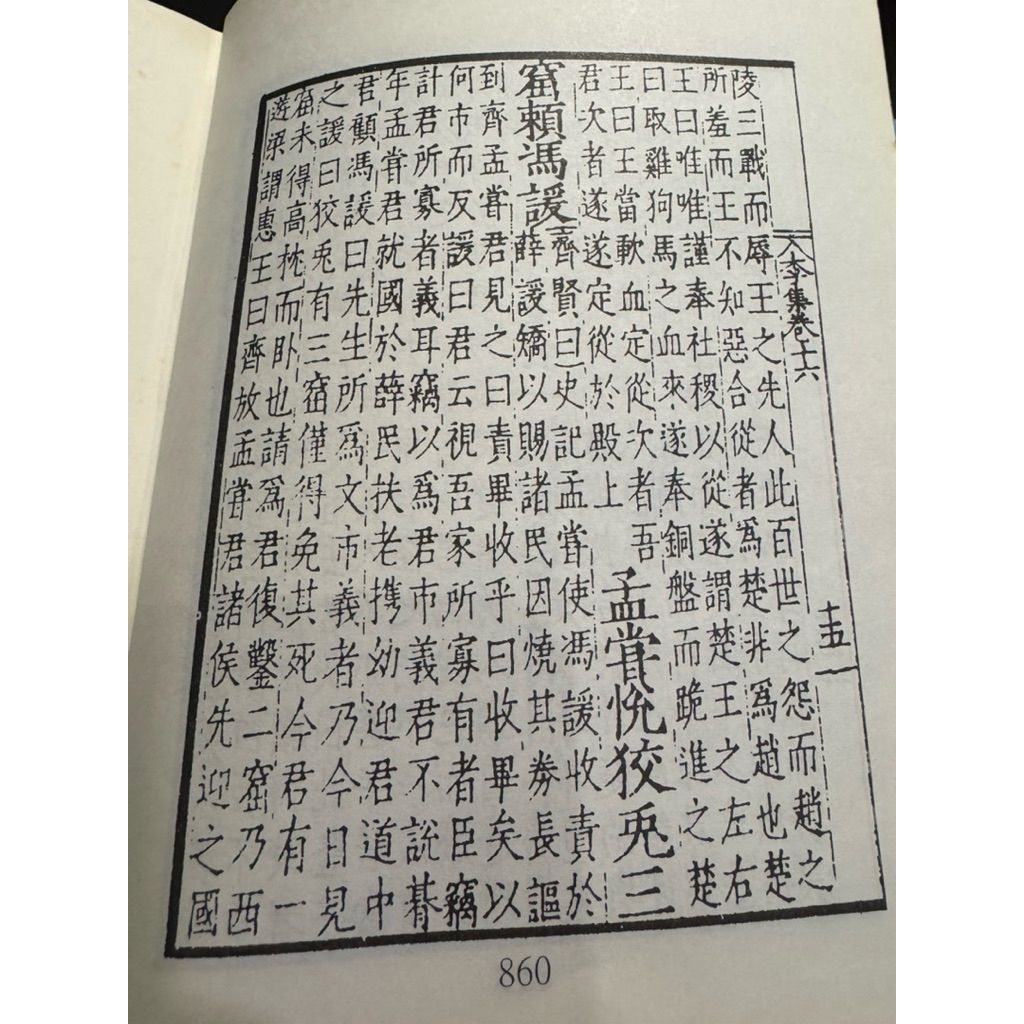 李集卷十六
十五
陵三戰而辱王之先人此百世之怨而趙之
所羞而王不知惡合從者為楚非爲趙也楚
王曰唯唯謹奉社稷以從遂謂楚王之左右
曰取雞狗馬之血來遂奉銅盤而跪進之楚
王曰王當軟血定從次者吾
君次者遂遂定從於殿上
孟嘗悅狡兎三
窟賴馮諼
(齊賢曰)史記孟嘗使馮諼收責於
薛諼矯以賜諸民因燒其券長謳
到齊孟嘗君見之曰責畢收乎曰收畢矣以
何市而反諼曰君云視吾家所寡有者臣竊
計君所寡者義耳竊以爲君市義君不說朞
年孟嘗君就國於薛民扶老携幼迎君道中
君顧馮諼曰先生所爲文市義者乃今日見
之諼曰狡兎有三窟僅得免其死今君有一
窟未得高枕而卧也請爲君復鑿二窟乃西
遊梁謂惠王曰齊放孟嘗君諸侯先迎之國
860